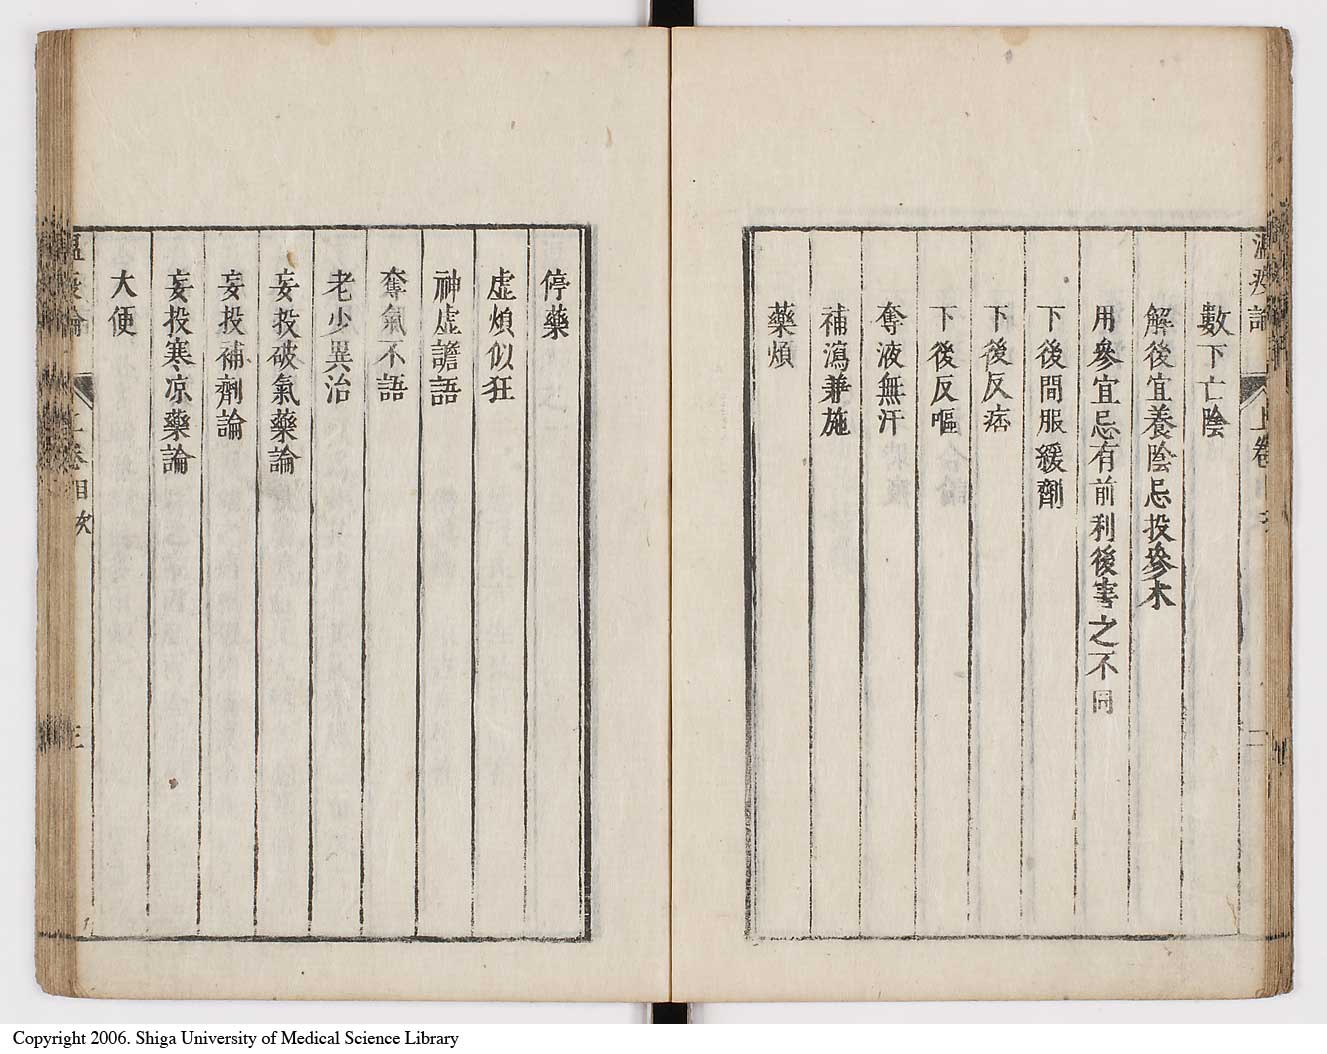 數下亡陰
解後宜養陰忌投參朮
用參宜忌有前利後害之不同
下後間服緩劑
下後反痞
下後反嘔
奪液無汗
補瀉兼施
藥煩
停藥
虛煩似狂
神虛譫語
奪氣不語
老少異治
妄投破氣藥論
妄投補劑論
妄投寒凉藥論
大便
Copyright 2006. Shiga University of Medical Science Library